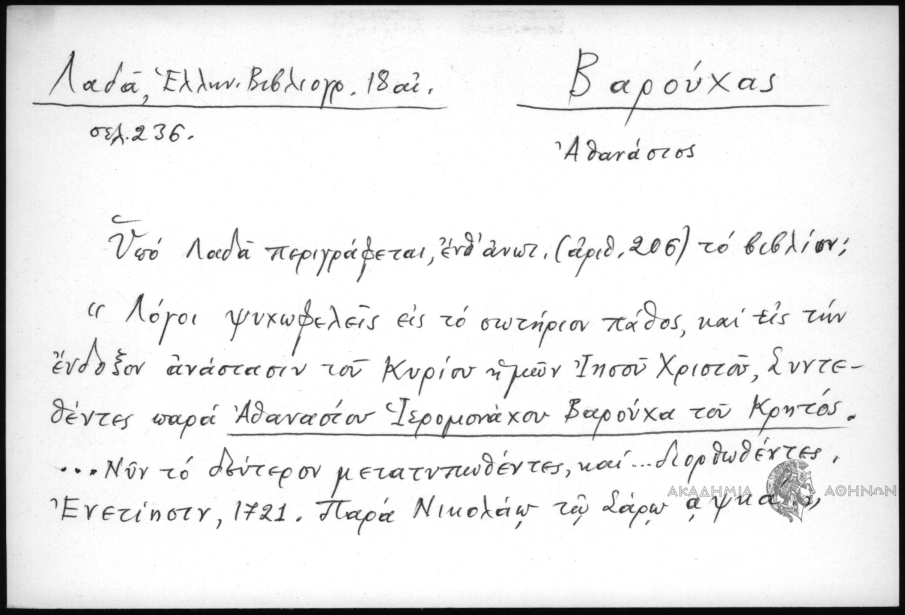 Λαδᾶ, Ἑλλην. Βιβλιογρ. 18 αἰ.
σελ. 236.
Βαρούχας
Ἀθανάσιος
Ὑπό Λαδᾶ περιγράφεται, ἔνθ' ἀνωτ. (ἀριθ. 206) τό βιβλίον:
"Λόγοι ψυχωφελεῖς εἰς τό σωτήριον πάθος, καί εἰς τήν
ἔνδοξον ἀνάστασιν τοῦ Κυρίου ἡμῶν Ἰησοῦ Χριστοῦ, Συντε-
θέντες παρά Ἀθανασίου Ἱερομονάχου Βαρούχα τοῦ Κρητός.
... Νῦν τό δεύτερον μετατυπωθέντες, καί... διορθωθέντες.
ΑΚΑΔΗΜΙΑ ΑΘΗΝΩΝ
Ἐνετίησιν, 1721. Παρά Νικολάῳ τῷ Σάρῳ